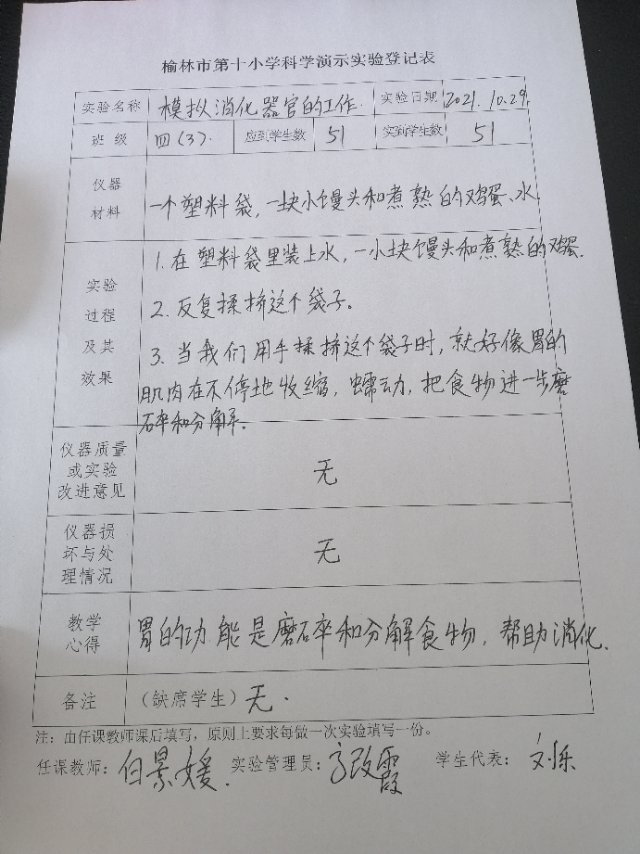 榆林市第十小学科学演示实验登记表
实验名称 模拟消化器官的工作. 实验日期 2021.10.29.
班级 四(3). 应到学生数 51 实到学生数 51
仪器
材料
一个塑料袋,一块小馒头和煮熟的鸡蛋、水
实验
过程
及其
效果
1.在塑料袋里装上水,一小块馒头和煮熟的鸡蛋.
2.反复揉挤这个袋子。
3.当我们用手揉挤这个袋子时,就好像胃的
肌肉在不停地收缩,蠕动,把食物进一步磨
碎和分解.
仪器质量
或实验
改进意见
无
仪器损
坏与处
理情况
无
教学
心得
胃的功能是磨碎和分解食物,帮助消化.
备注 (缺席学生)无.
注:由任课教师课后填写,原则上要求每做一次实验填写一份。
任课教师:白景媛. 实验管理员:改霞 学生代表:刘